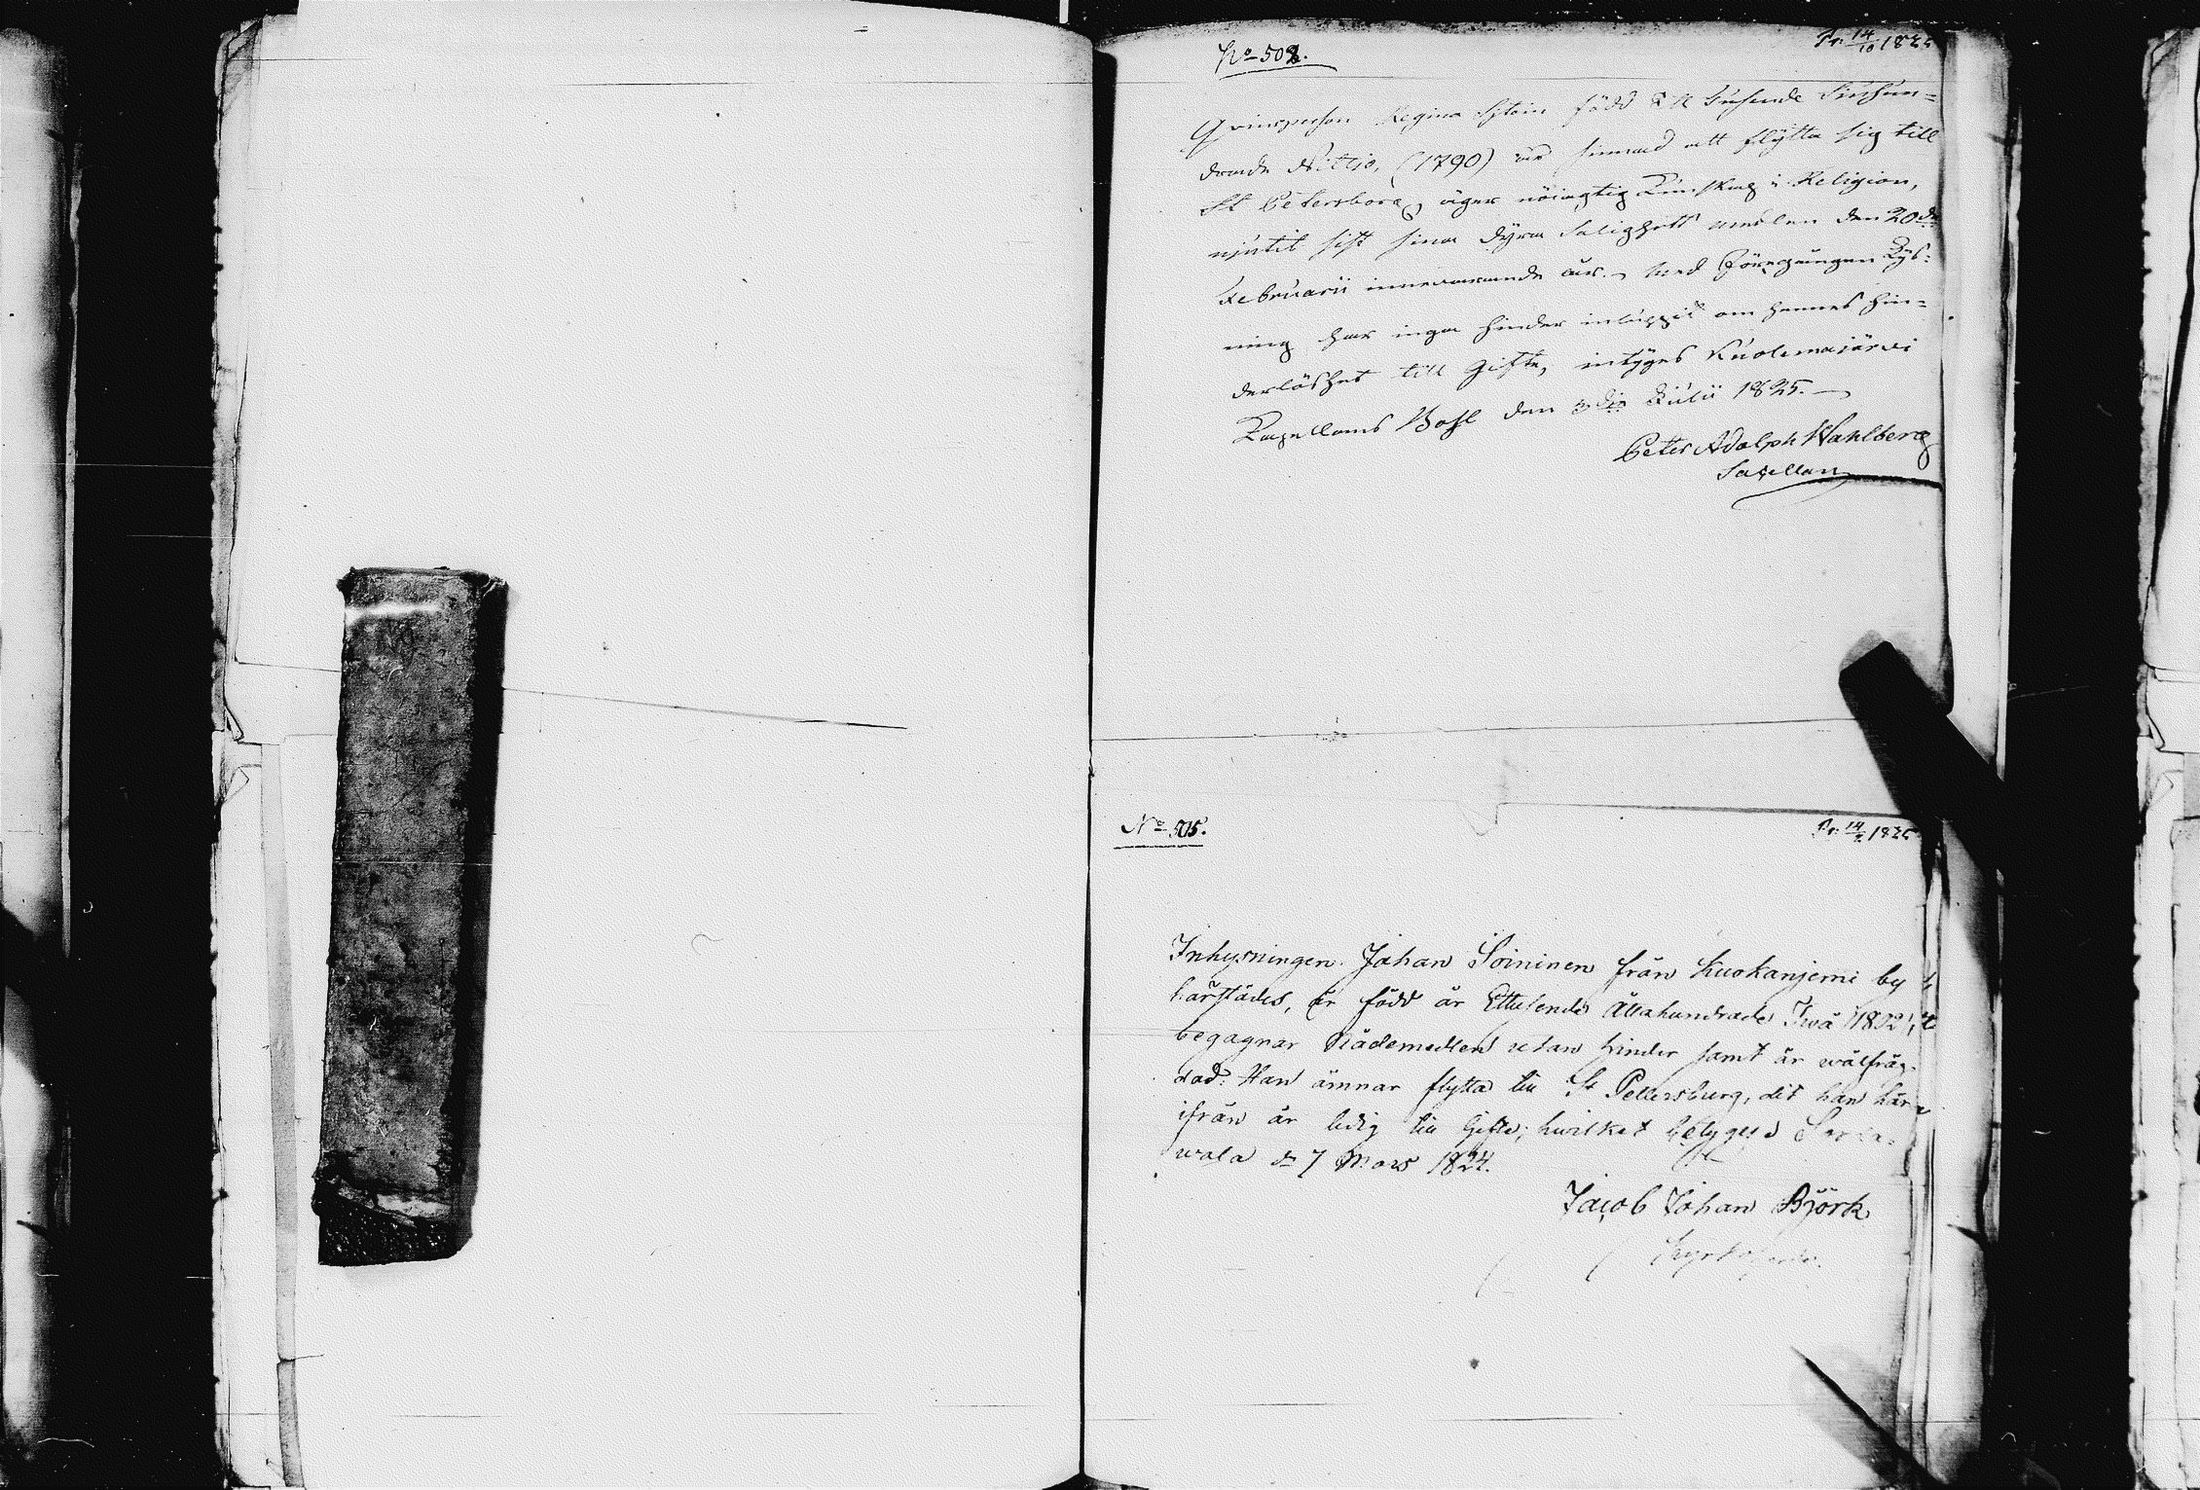 No 508.
Pr. 14/10 1825
Qvinsperson Regina Sytoin född Ett Tusende Siuhun=
drade Nittio, (1790) är sinnad att flÿtta sig till
St Petersborg, äger nöiagtig Kunskap i Religion,
njutit sist sina dÿra Salighets medlen den 20de
Februarii innevarande år. med föregången Lÿs=
ning har inga hinder inlupit om hennes hin=
derlöshet till Gifte, intÿgas Kuolemajärvi
Capellans Bohl den 3die Julii 1825.
Peter Adolph Wahlberg
Sacellan
No 505.
Pr. 14/ 1825
Inhysningen Johan Soininen från Kuokanjemi by
härstädes, är född år Ettusende Åttahundrade Två (1802),
begagnar Nådemedlen utan hinder samt är wälfräg-
dad. Han ämnar flytta till St Petersburg, dit han här
ifrån är ledig till Gifte; hwilket betygas Sorda-
wala d 7 Mars 1824.
Jacob Johan Björk